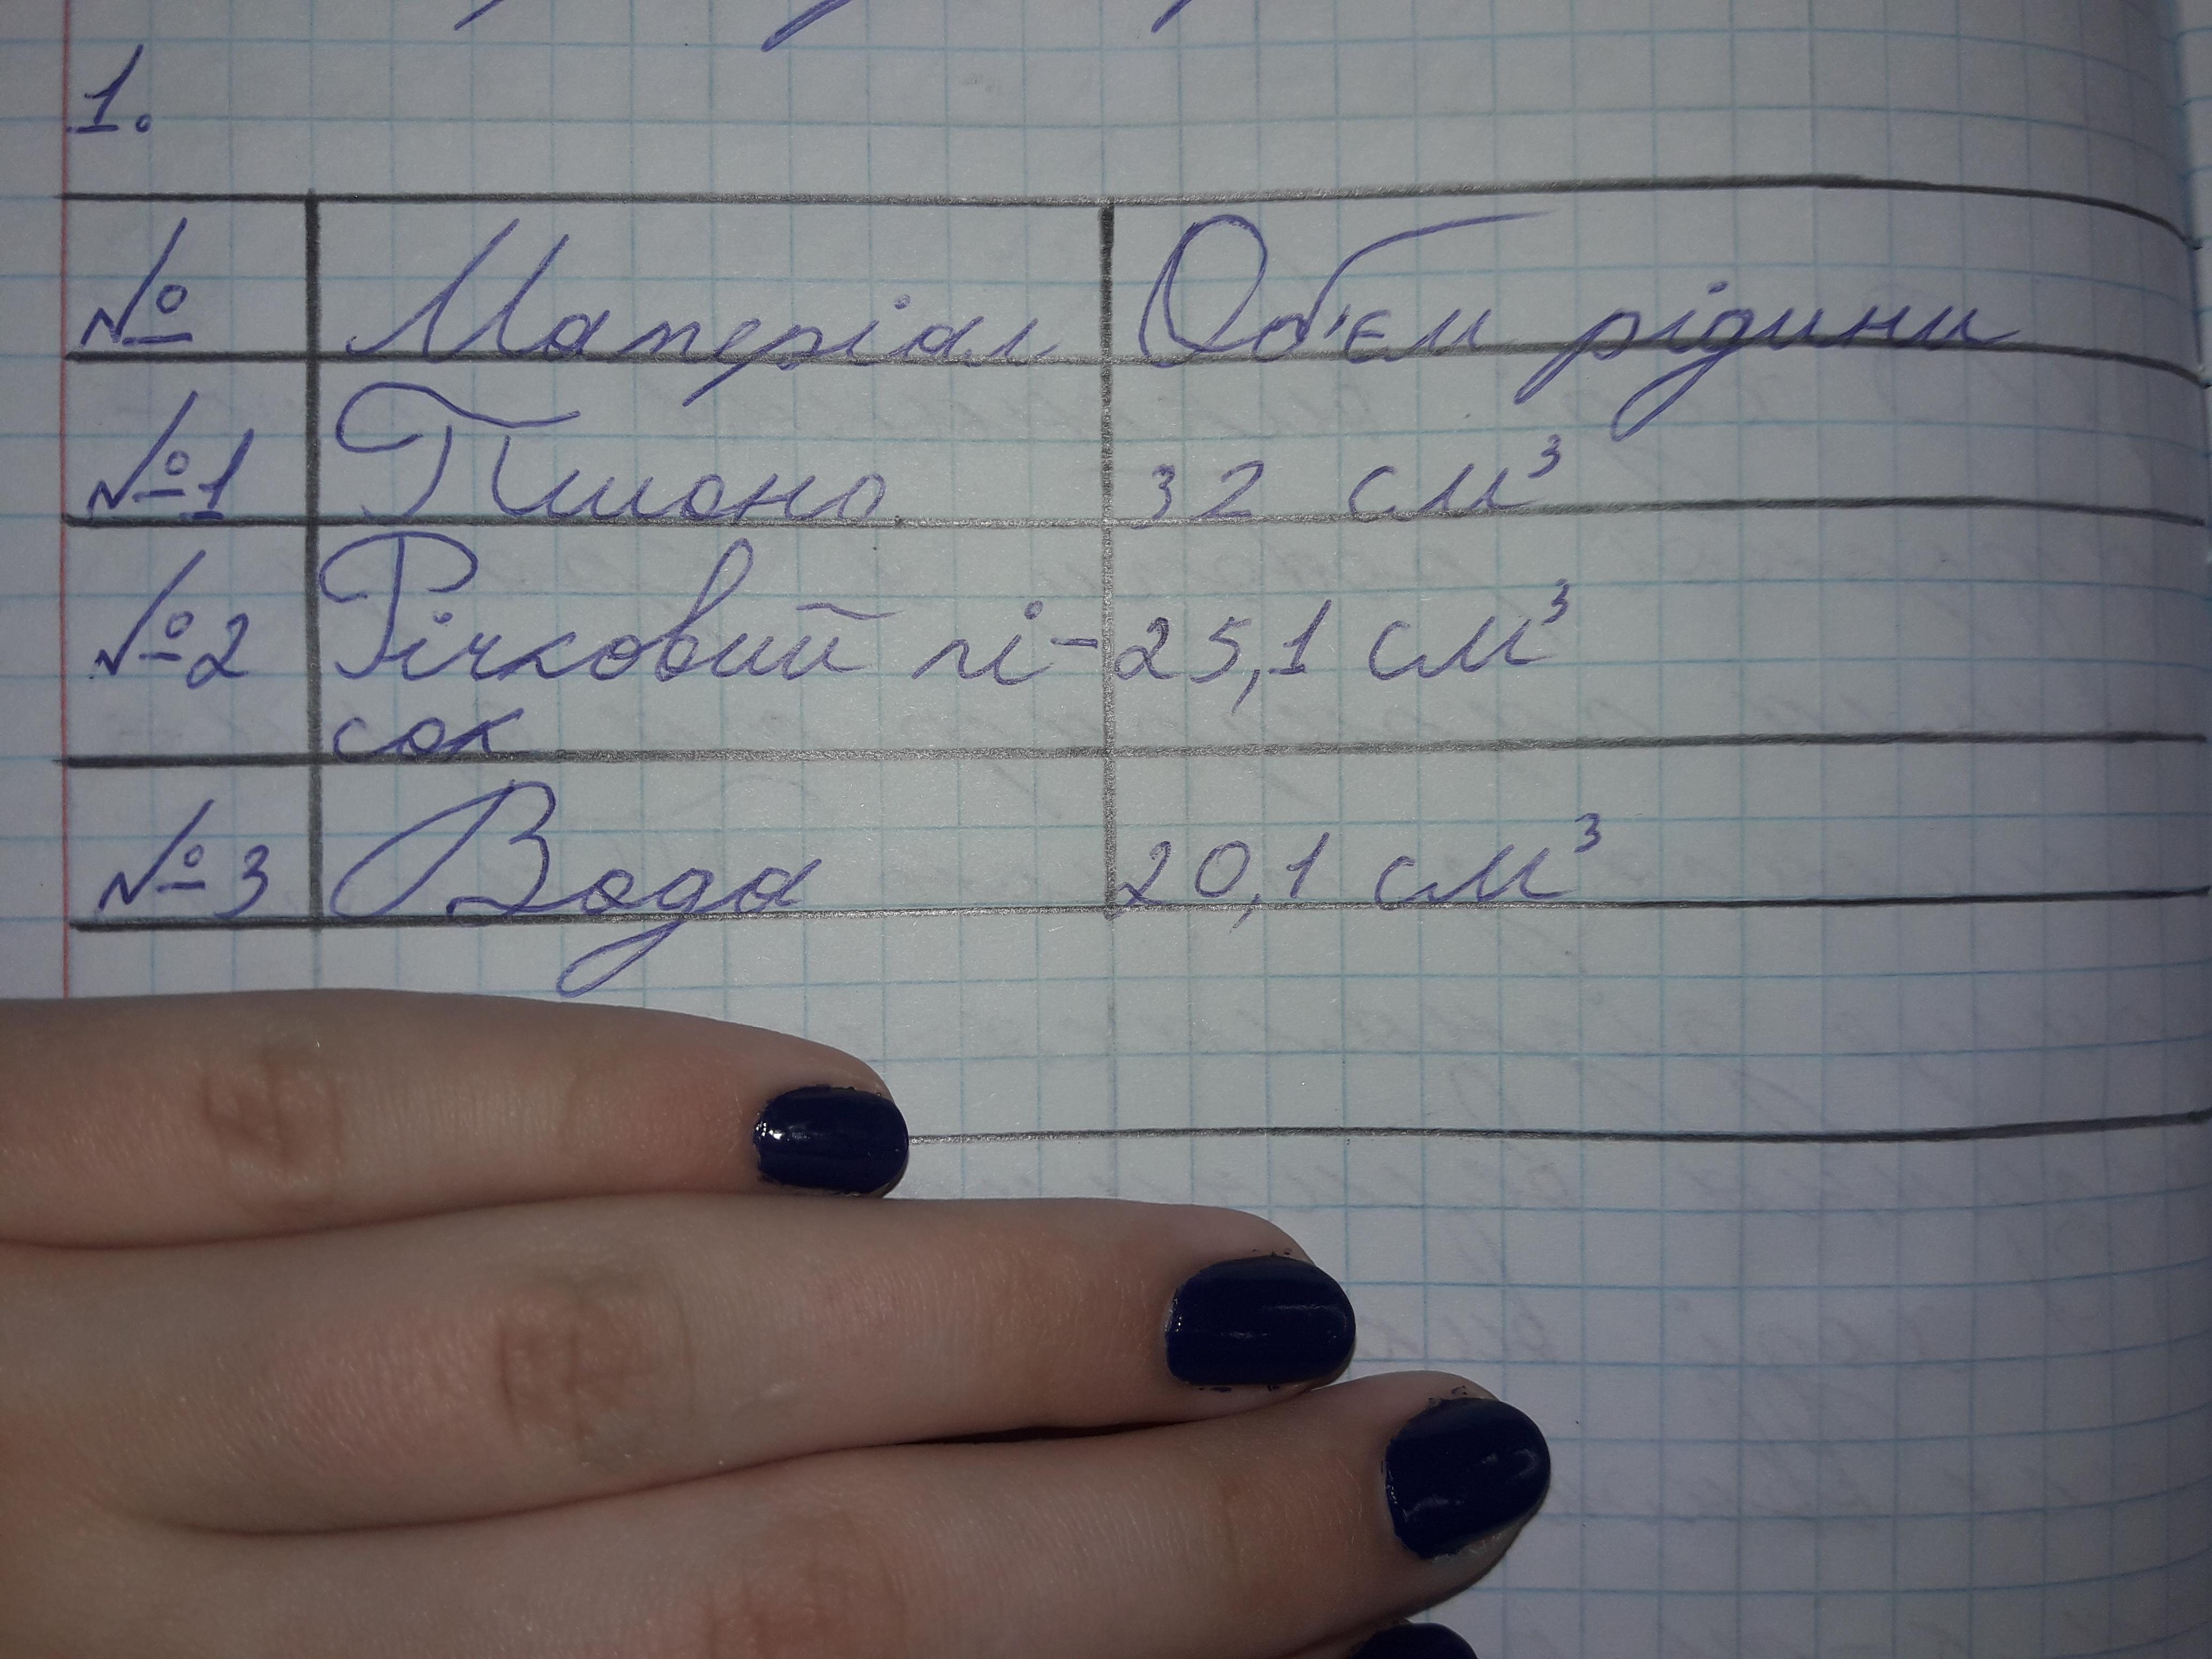 1.
№ Матеріал Об'єм рідини
№1 Пшоно 32 см³
№2 Річковий пі- 25,1 см³
сок
№3 Вода 20,1 см³